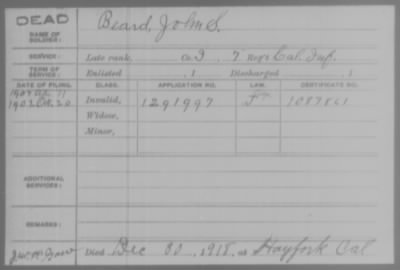 DEAD
NAME OF SOLDIER: Beard, John S.
SERVICE: Late rank, Co. I, 7 Reg't Cal. Inf.
TERM OF SERVICE: Enlisted , 1 Discharged , 1
DATE OF FILING. CLASS. APPLICATION NO. LAW. CERTIFICATE NO.
1902 Oct. 20 Invalid, 1291997 1087861
Widow,
Minor,
ADDITIONAL SERVICES:
REMARKS:
Died Dec 00, 1918, at Hayfork Cal